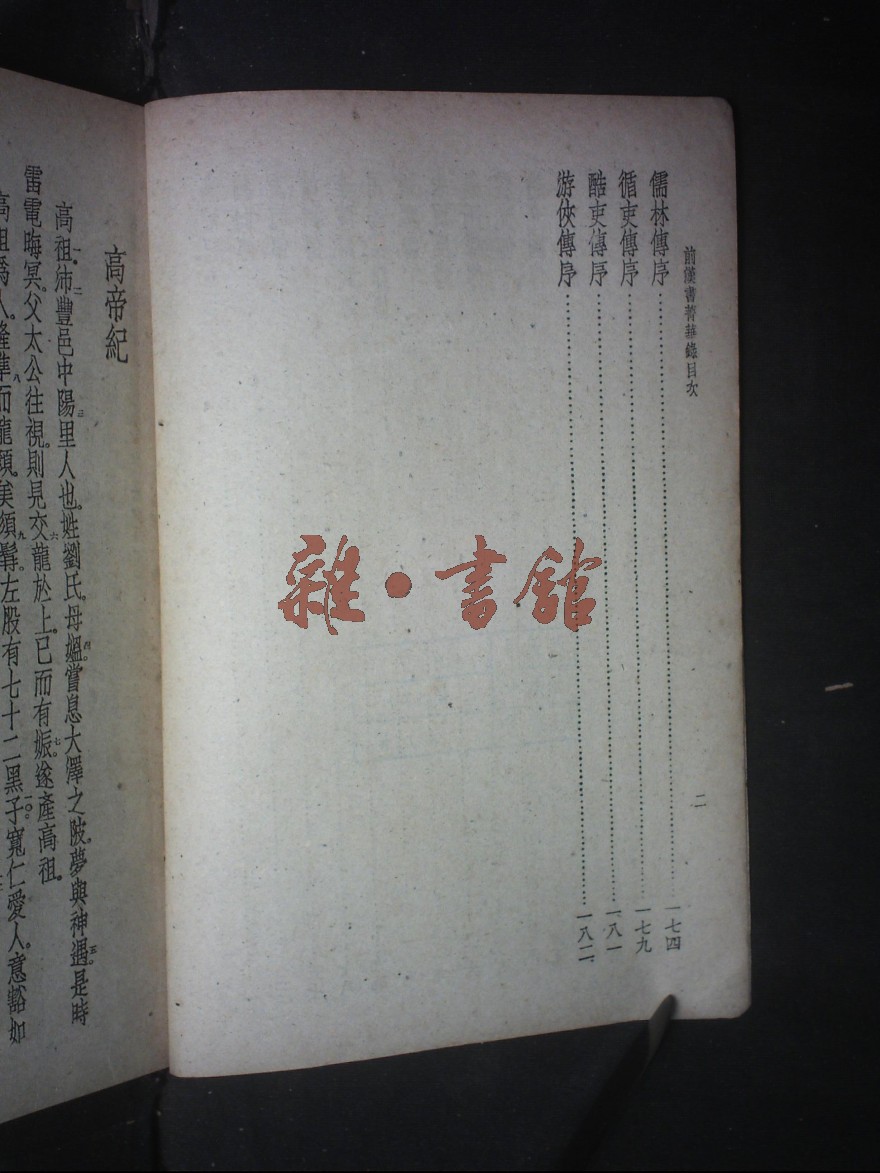 前漢書菁華錄目次
二
儒林傳序……一七四
循吏傳序……一七九
酷吏傳序……一八一
游俠傳序……一八二
雜·書館
高帝紀
高祖一沛二豐邑中陽里三人也。姓劉氏。母媼四嘗息大澤之陂。夢與神遇五。是時
雷電晦冥。父太公往視。則見交六龍於上。已而有娠七。遂產高祖。
高祖爲人。隆準八而龍顏。美須髯九。左股有七十二黑子一〇。寬仁愛人。意豁如